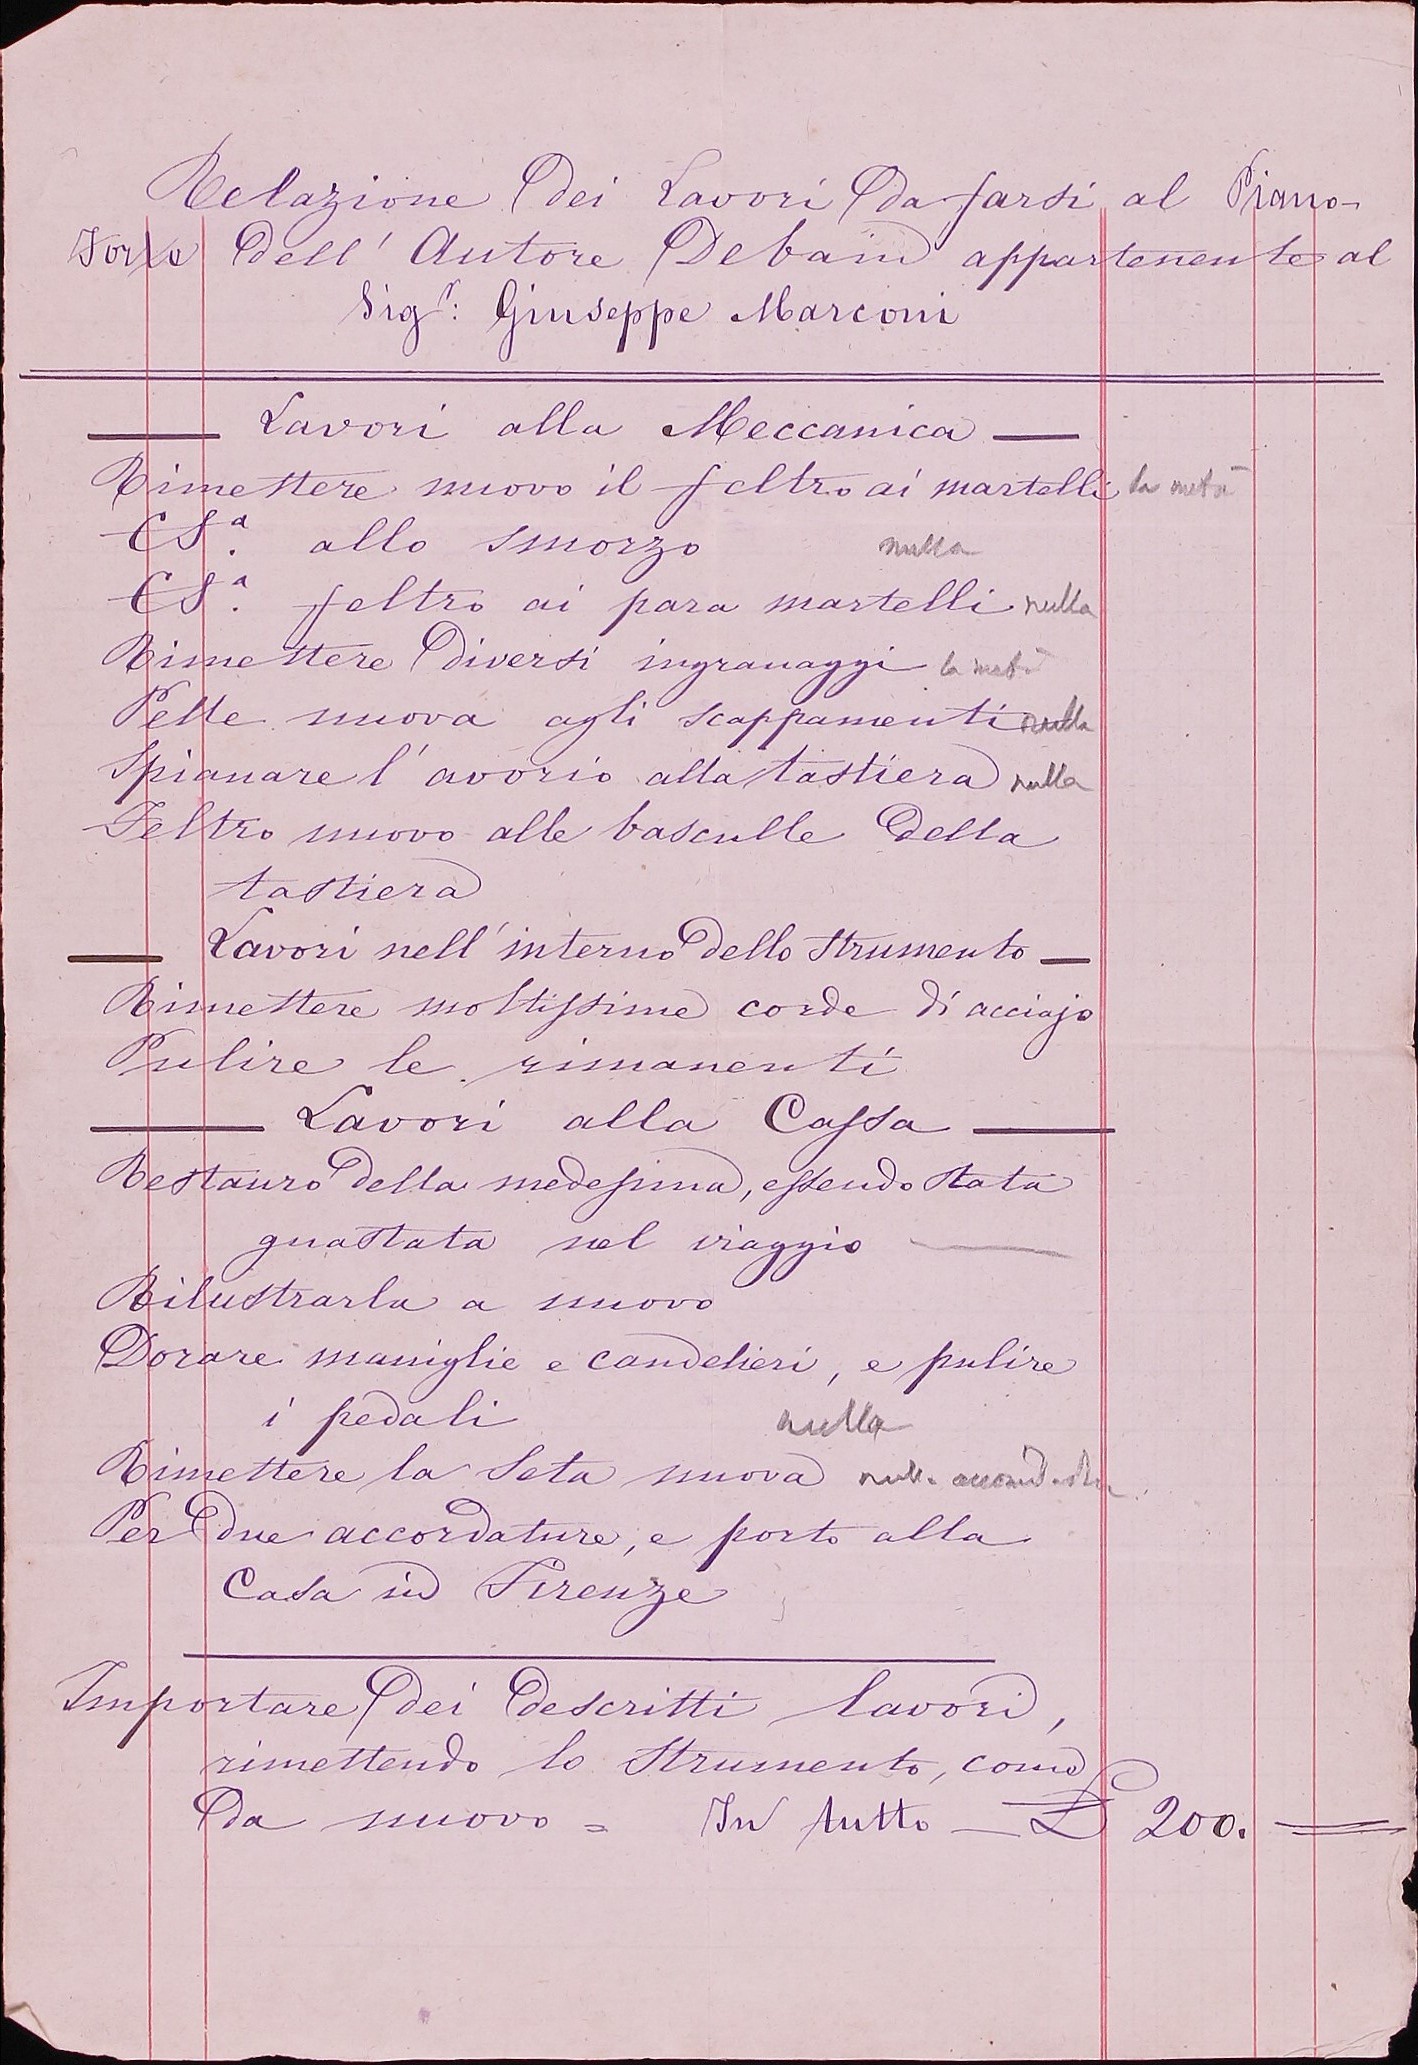 Relazione dei Lavori da farsi al Piano-
Forte dell' Autore Debain appartenente al
Sigr: Giuseppe Marconi
Lavori alla Meccanica
Rimettere nuovo il feltro ai martelli la metà
CSa. allo smorzo nulla
CSa. feltro ai para martelli nulla
Rimettere diversi ingranaggi la metà
Pelle nuova agli scappamenti nulla
Spianare l'avorio alla tastiera nulla
Feltro nuovo alle basculle della
tastiera
Lavori nell'interno dello strumento
Rimettere moltissime corde di acciajo
Pulire le rimanenti
Lavori alla Cassa
Restauro della medesima, essendo stata
guastata nel viaggio
Rilustrarla a nuovo
Dorare maniglie e candelieri, e pulire
i pedali nulla
Rimettere la seta nuova nulla
Per due accordature, e porto alla
Casa in Firenze
Importare dei descritti lavori,
rimettendo lo strumento, come
da nuovo = In tutto £ 200.